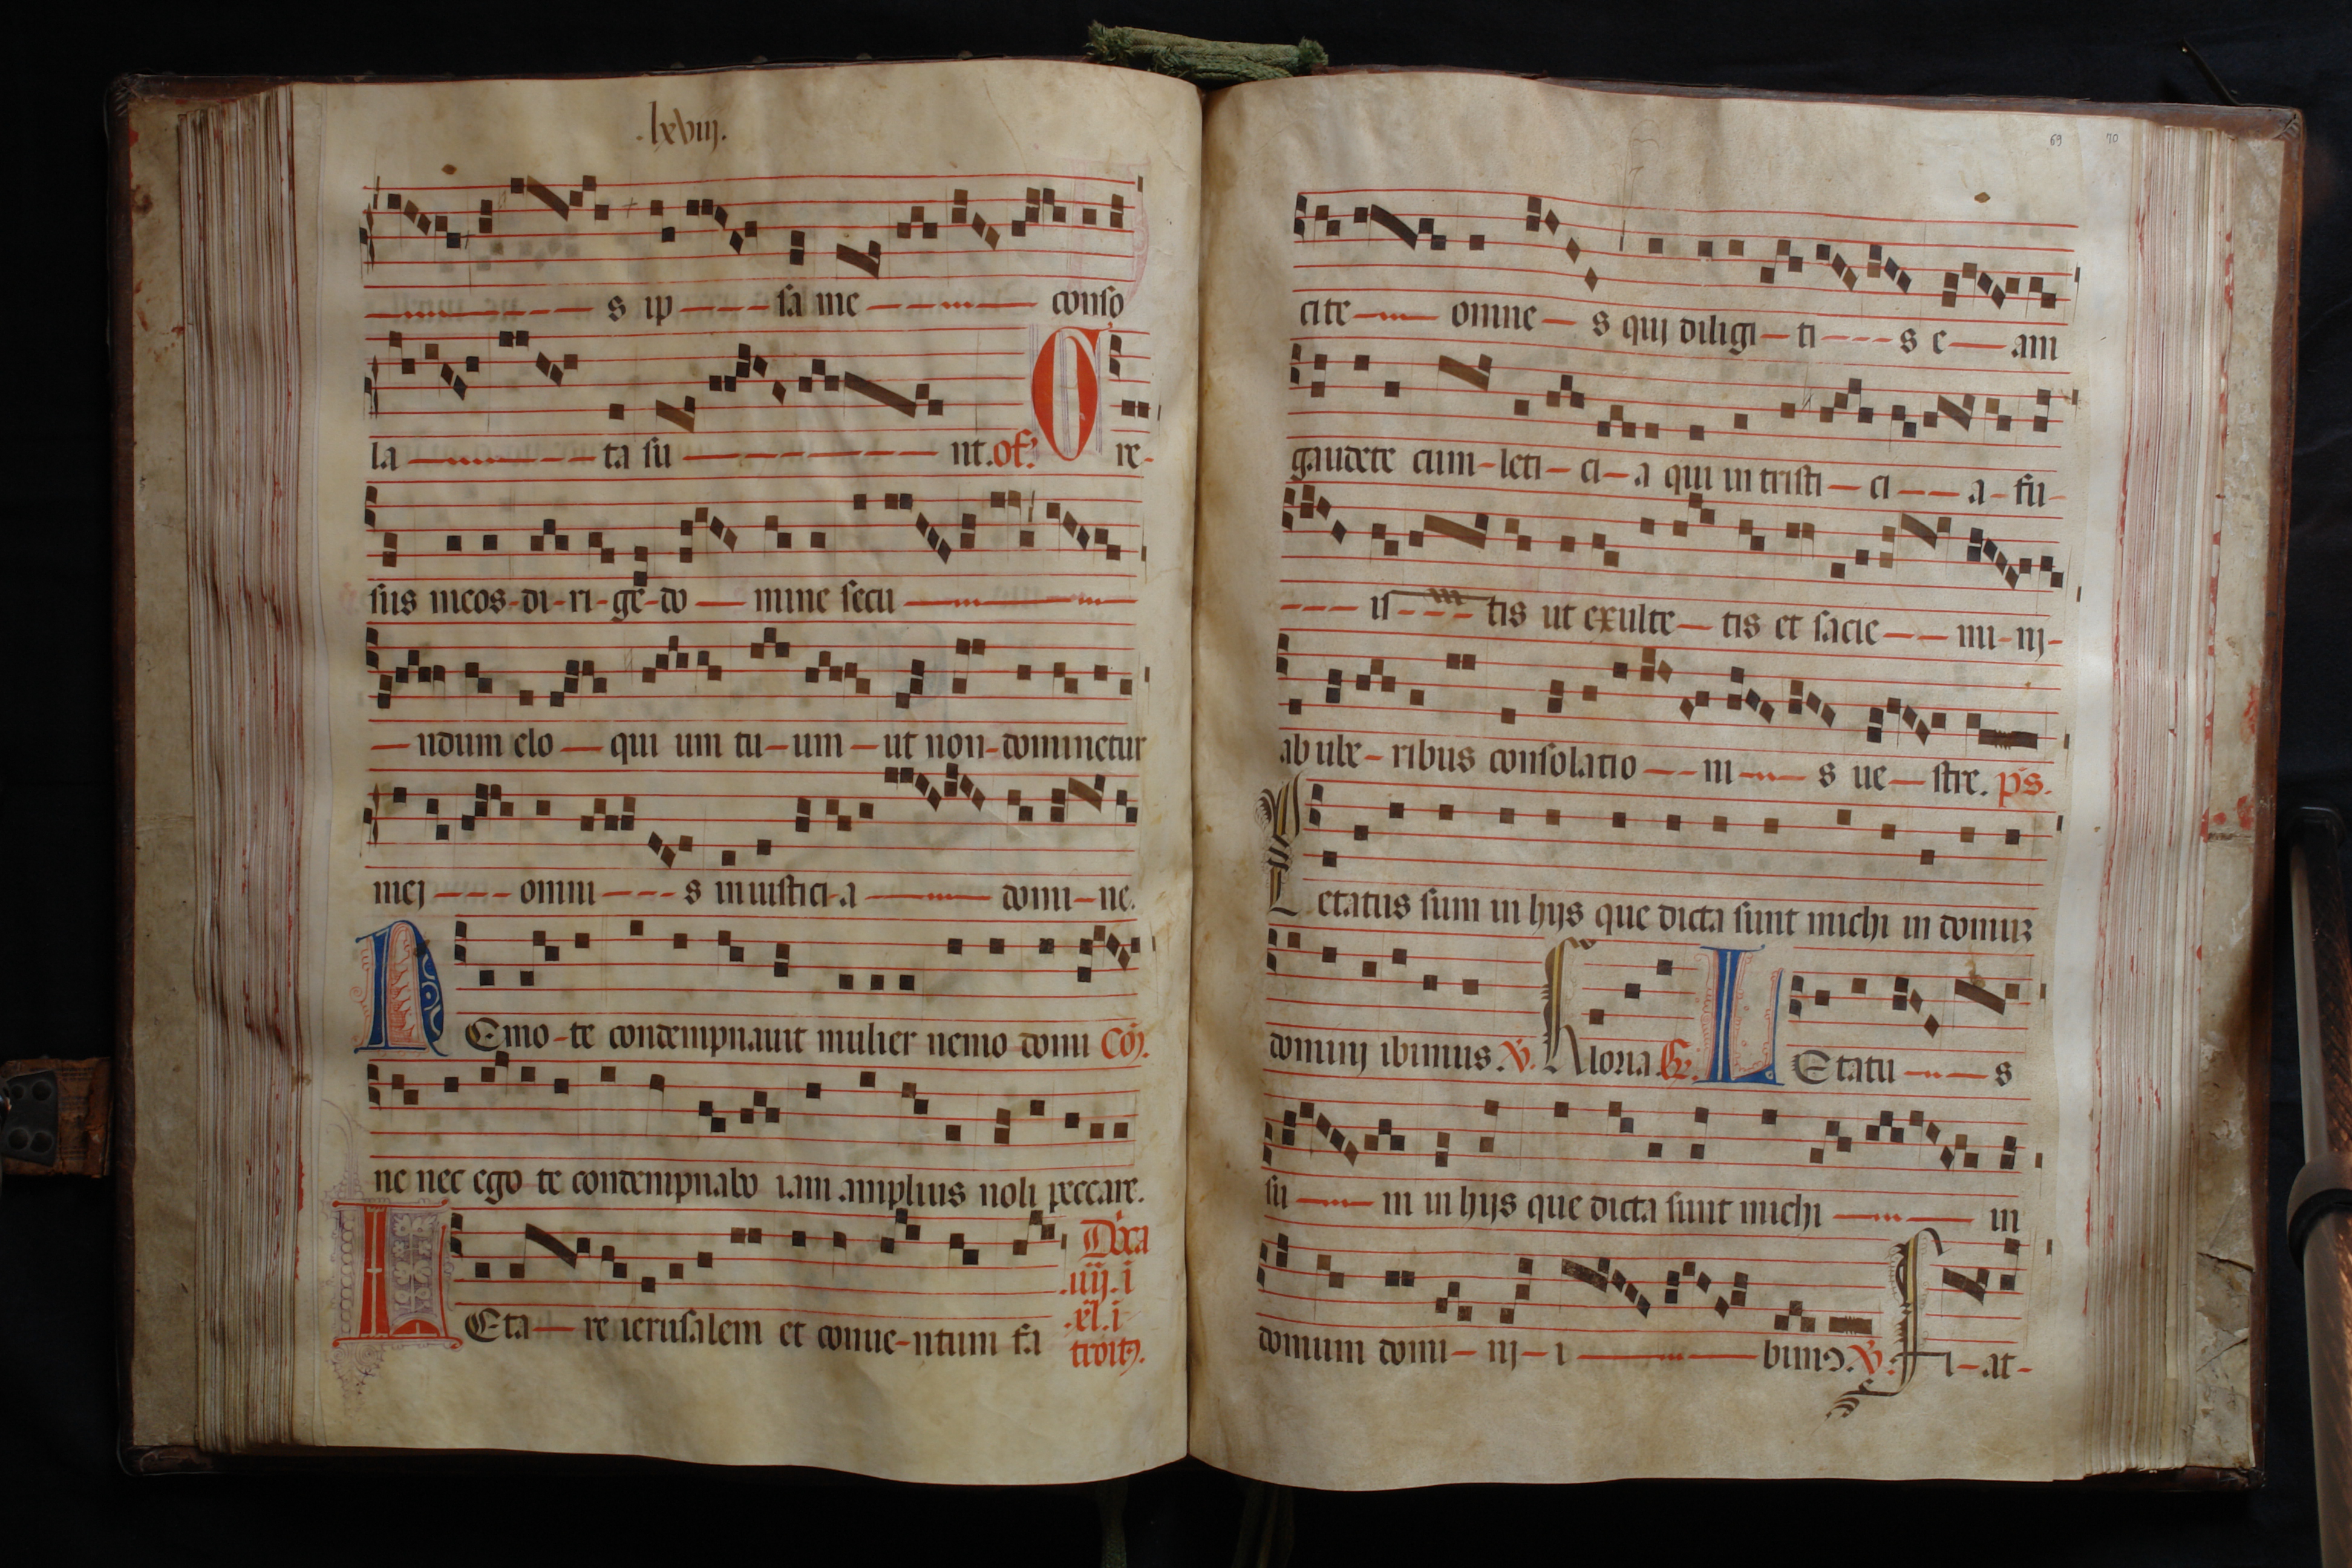 .lxviij.
s ip sa me conso
la ta su nt. of. G re
sus meos di ri ge do mine secu
ndum elo qui um tu um ut non dominetur
mej omni s iniustici a domi ne.
N Emo te condempnauit mulier nemo domi Cō.
ne nec ego te condempnabo iam amplius noli peccare.
L Eta re ierusalem et conue ntum fa
Dōca
.iiij. i
.xl. i
troitꝰ.
69 70
cite omne s quj diligi ti s e am
gaudete cum leti ci a qui in tristi ci a fu
is tis ut exulte tis et sacie mi nj
ab ube ribus consolatio ni s ue stre. ps.
L etatus sum in hijs que dicta sunt michi in domuꝫ
dominj ibimus. V. Gloria. Gr. L Etatu s
su m in hijs que dicta sunt michi in
domum domi nj i bimꝰ. V. F i at